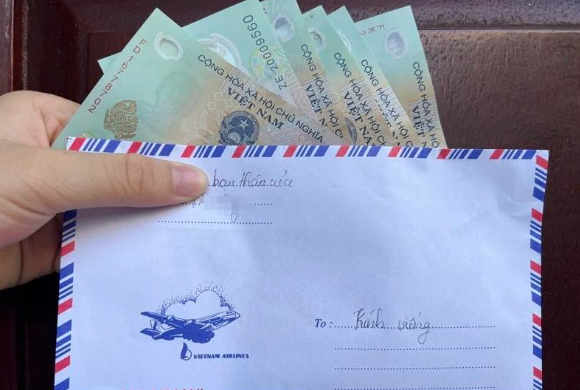 ZE 20009560
CỘNG HÒA XÃ HỘI CHỦ NGHĨA
VIỆT NAM
CỘNG HÒA XÃ HỘI CHỦ
VIỆT NAM
CỘNG HÒA XÃ HỘI
VIỆT NAM
CỘNG HÒA XÃ HỘI
VIỆT NAM
bạn thân của
To : Kính viếng
VIETNAM AIRLINES